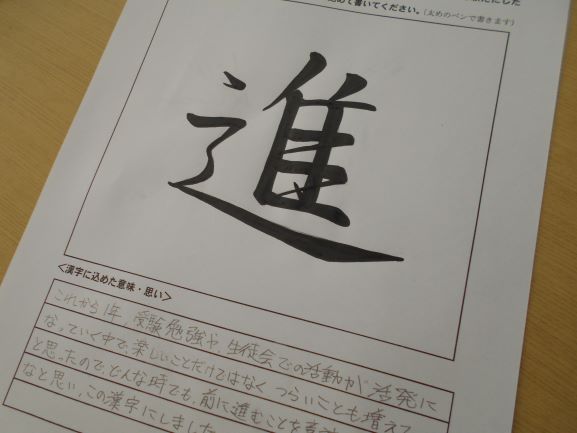 にした
めて書いてください。(太めのペンで書きます)
進
<漢字に込めた意味・思い>
これから1年、受験勉強や、生徒会での活動が活発に
なっていく中で、楽しいことだけではなくつらいことも増えて
と思ったので、どんな時でも、前に進むことを
なと思い、この漢字にしました